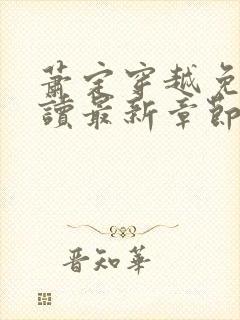 蕭定穿越免
讀最新章節
晋知華